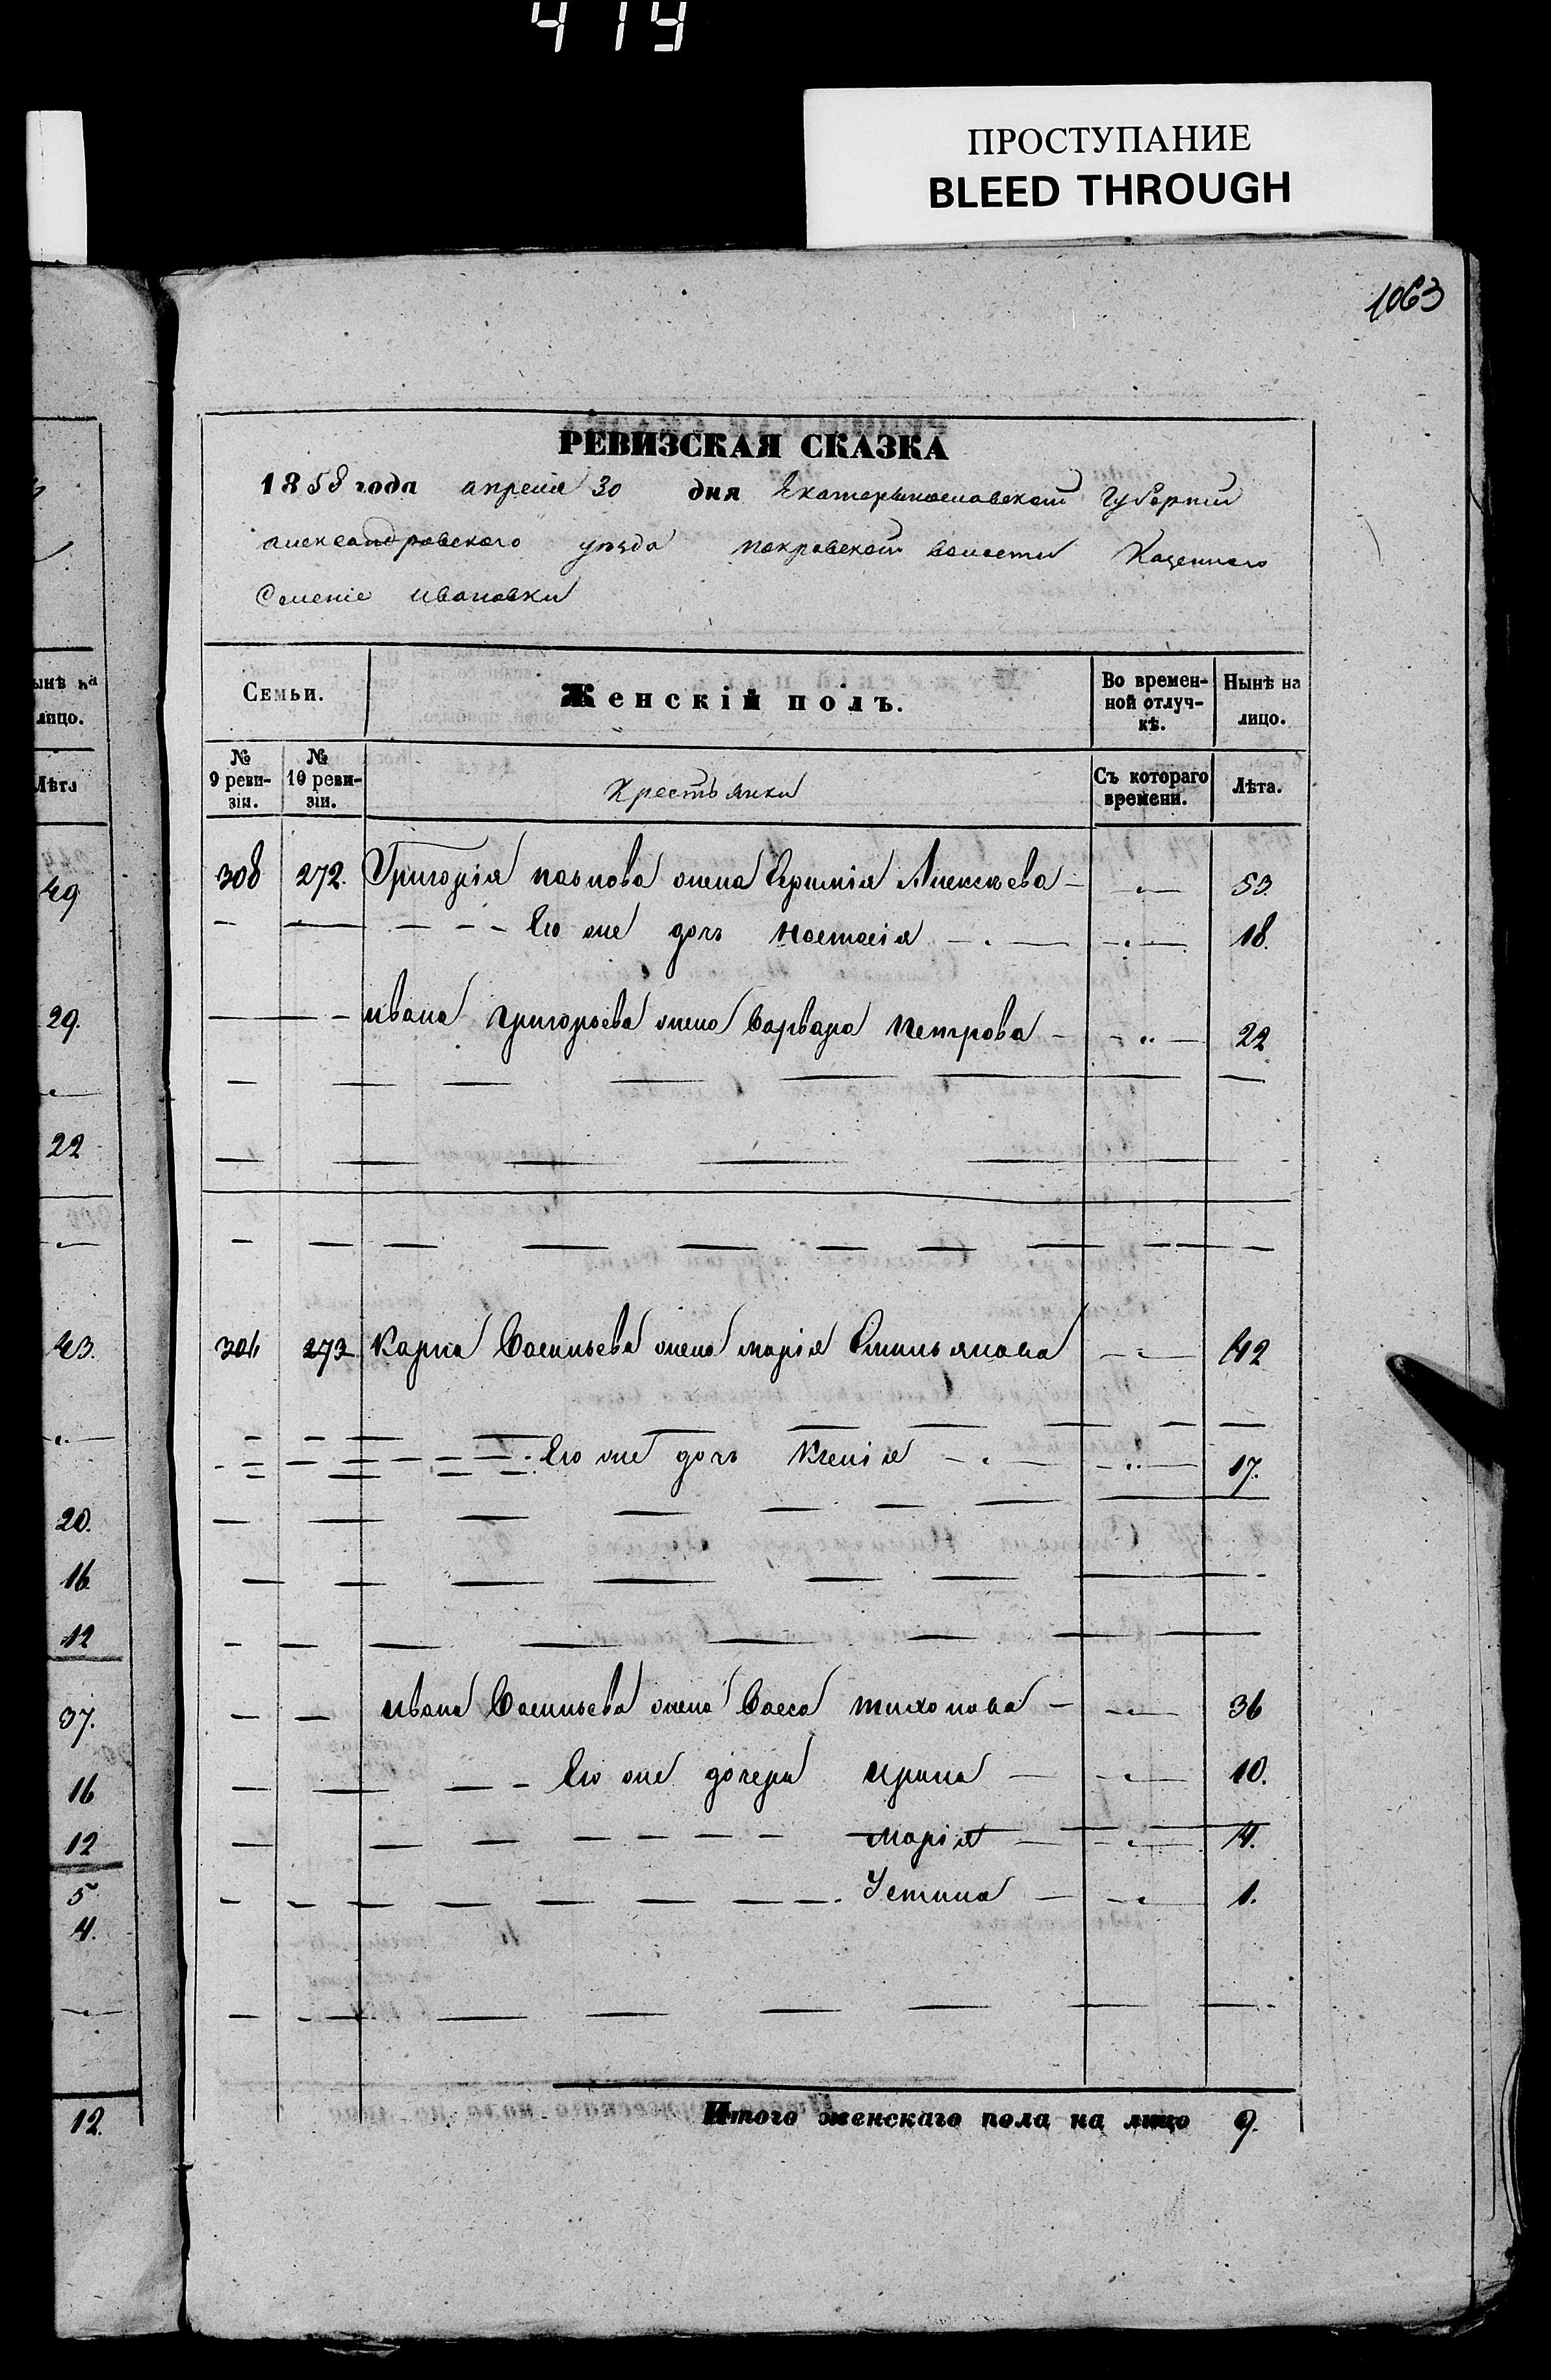 419
ПРОСТУПАНИЕ
BLEED THROUGH
1063
РЕВИЗСКАЯ СКАЗКА
1858 года апреля 30 дня Екатеринославской Губернии
александровского уезда покровской волости Казенного
Селение ивановки
Семьи.
Женскій полъ.
Во времен-
ной отлуч-
кѣ.
Нынѣ на
лицо.
№
9 реви-
зіи.
№
10 реви-
зіи.
Крестьянки
Съ котораго
времени.
Лѣта.
308 272. Григорія жена Алексѣева 53.
Его же дочь настасія 18.
ивана григорьева жена варвара петрова 22
273 карпа васильева жена марія Емильянова 42
Его же дочь Ксенія 17.
ивана васильева жена васса тихонова 36
Его же дочери ирина 10.
марія 4.
Устина 1.
Итого женскаго пола на лицо 9.
ынѣ на
лицо.
Лѣта
49
29.
22
43.
20.
16
12
37.
16
12
5
4.
12.